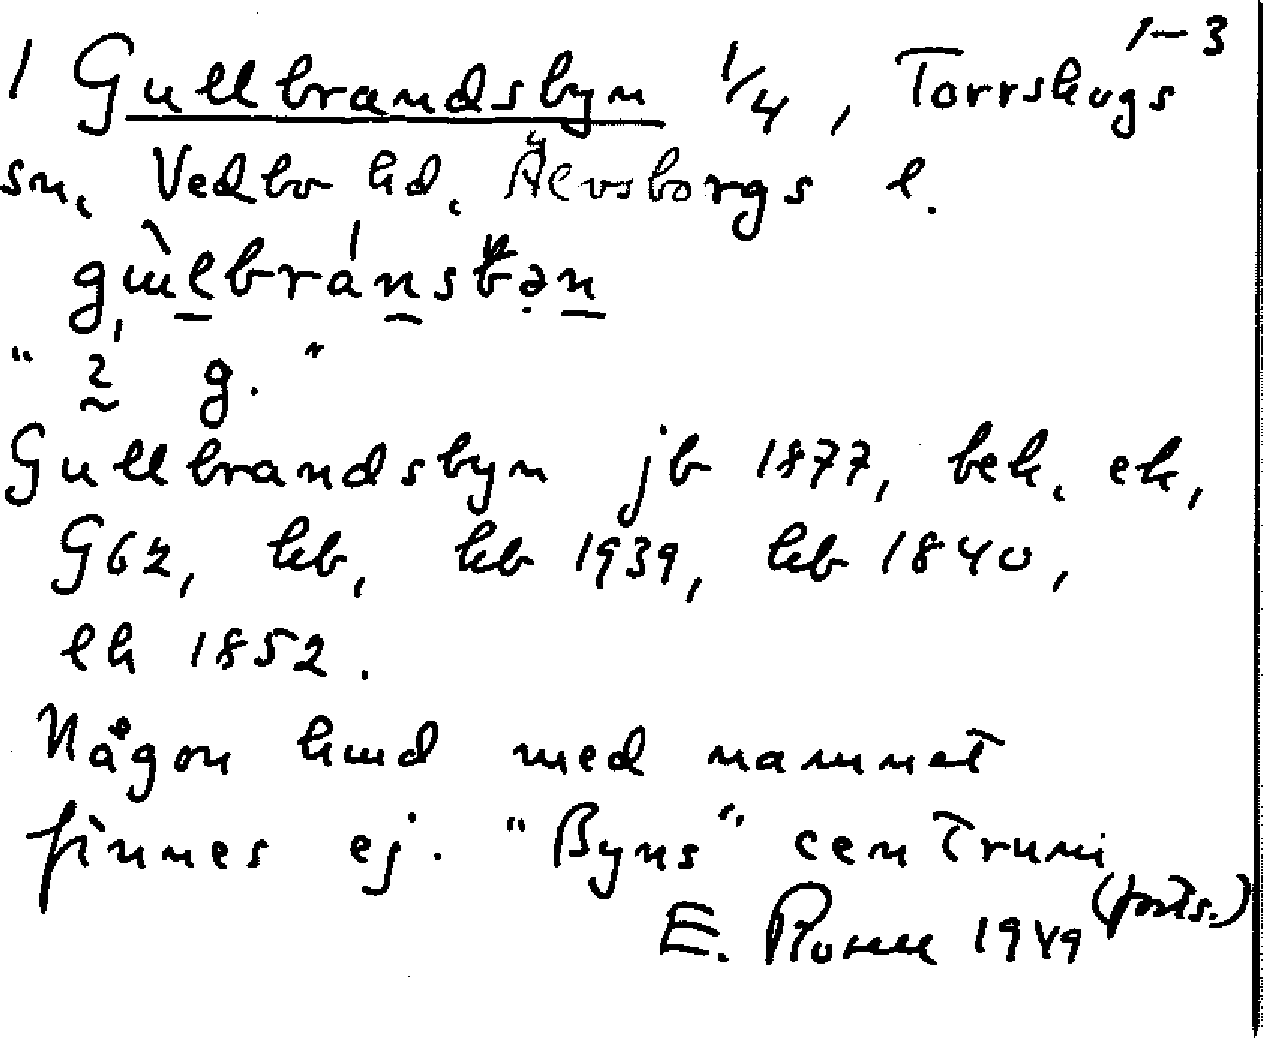 1-3
1 Gullbrandsbyn 1/4, Torrskogs
sn, Vedbo hd, Älvsborgs l.
" 2 g. "
Gullbrandsbyn jb 1877, bek. ek,
G62, hb, kb 1939, kb 1840,
lk 1852.
Någon hmd med namnet
finnes ej. "Byns" centrum
(forts.)
E. 1949